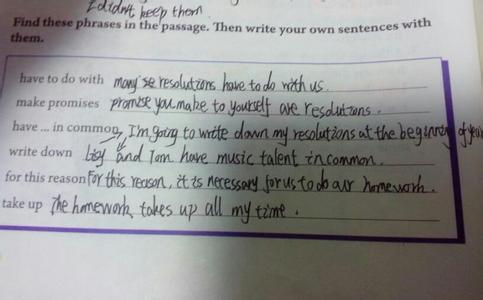 I didn't keep them
Find these phrases in the passage. Then write your own sentences with
them.
have to do with many resolutions have to do with us.
make promises promise you make to yourself are resolutions.
have ... in common, I'm going to write down my resolutions at the beginning of year
write down Lisy and Tom have music talent in common.
for this reason For this reason, it is necessary for us to do our homework.
take up The homework takes up all my time.